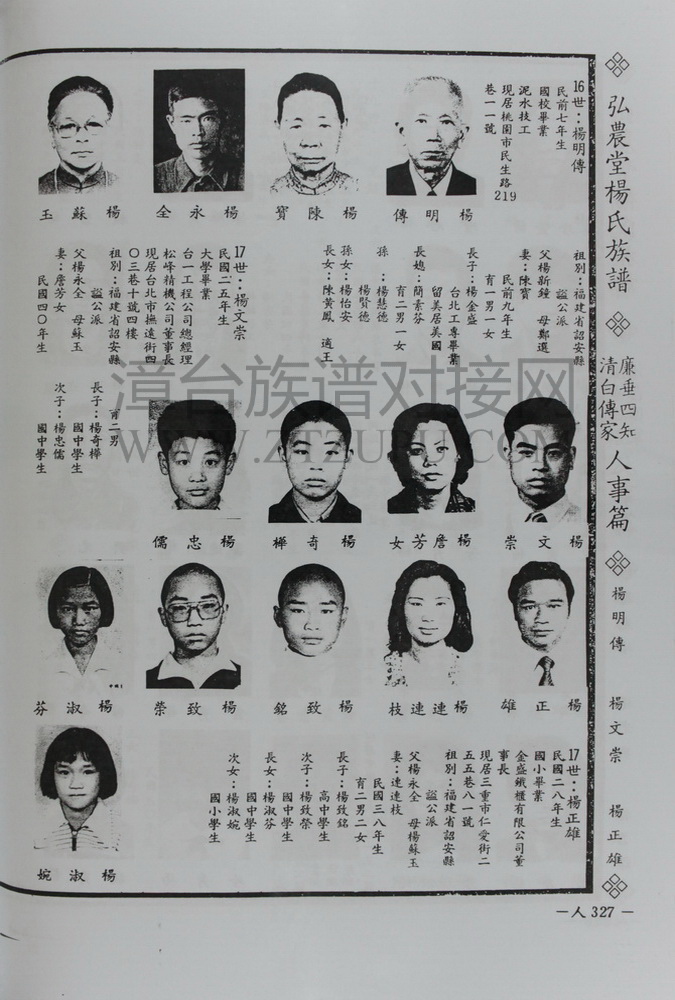 弘農堂楊氏族譜
廉垂四知
清白傳家
人事篇
楊明傳 楊文崇 楊正雄
16世：楊明傳
民前七年生
國校畢業
泥水技工
現居桃園市民生路219
巷一一號
楊明傳
楊陳寶
楊永全
楊蘇玉
祖別：福建省詔安縣
謚公派
父楊新鐘 母鄭選
妻：陳寶
民前九年生
育一男一女
長子：楊金盛
台北工專畢業
留美居美國
長媳：簡素芬
育二男一女
孫：楊慧德
楊賢德
孫女：楊怡安
長女：陳黃鳳 適王
17世：楊文崇
民國二五年生
大學畢業
台一工程公司總經理
松峰精機公司董事長
現居台北市撫遠街四
〇三巷十號四樓
祖別：福建省詔安縣
謚公派
父楊永全 母蘇玉
妻：詹芳女
民國四〇年生
育二男
長子：楊奇樺
國中學生
次子：楊忠儒
國中學生
楊文崇
楊詹芳女
楊奇樺
楊忠儒
楊正雄
楊連連枝
楊致銘
楊致榮
楊淑芬
17世：楊正雄
民國二八年生
國小畢業
金盛鐵櫃有限公司董
事長
現居三重市仁愛街二
五五巷八一號
祖別：福建省詔安縣
謚公派
父楊永全 母楊蘇玉
妻：連連枝
民國三八年生
育二男二女
長子：楊致銘
高中學生
次子：楊致榮
國中學生
長女：楊淑芬
國中學生
次女：楊淑婉
國小學生
楊淑婉
—人327—
漳台族谱对接网
WWW.ZTZUPU.COM